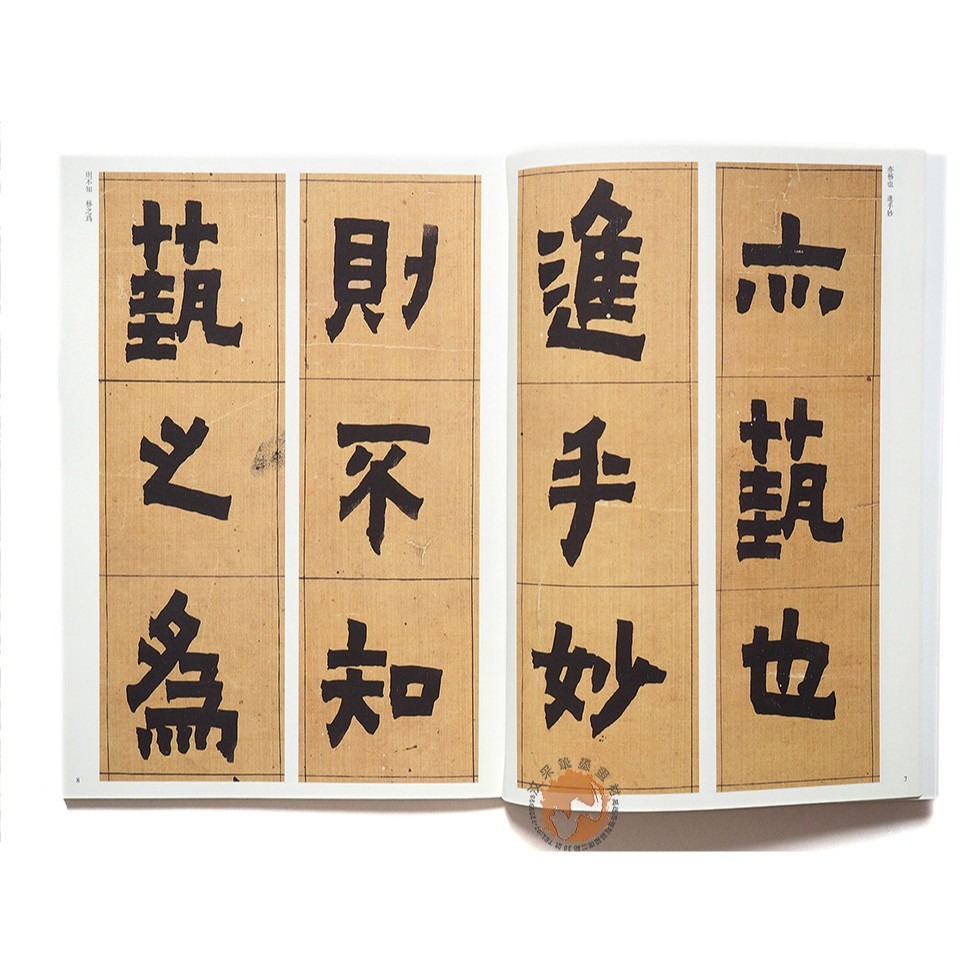 亦藝也
進乎妙
則不知
藝之爲
亦藝也 進乎妙
則不知 藝之爲
7
8